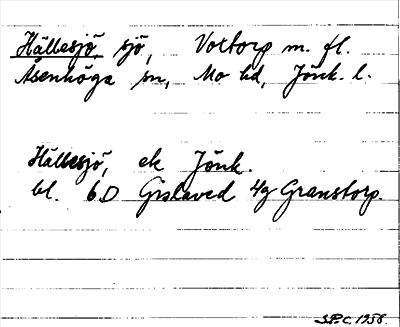 Hällesjö, sjö, Vostorp m. fl.
Åsenhöga sn, Mo hd, Jönk. l.
Hällesjö, ek Jönk.
bl. 6D Gislaved 4g Granstorp.
S.P.C. 1958.